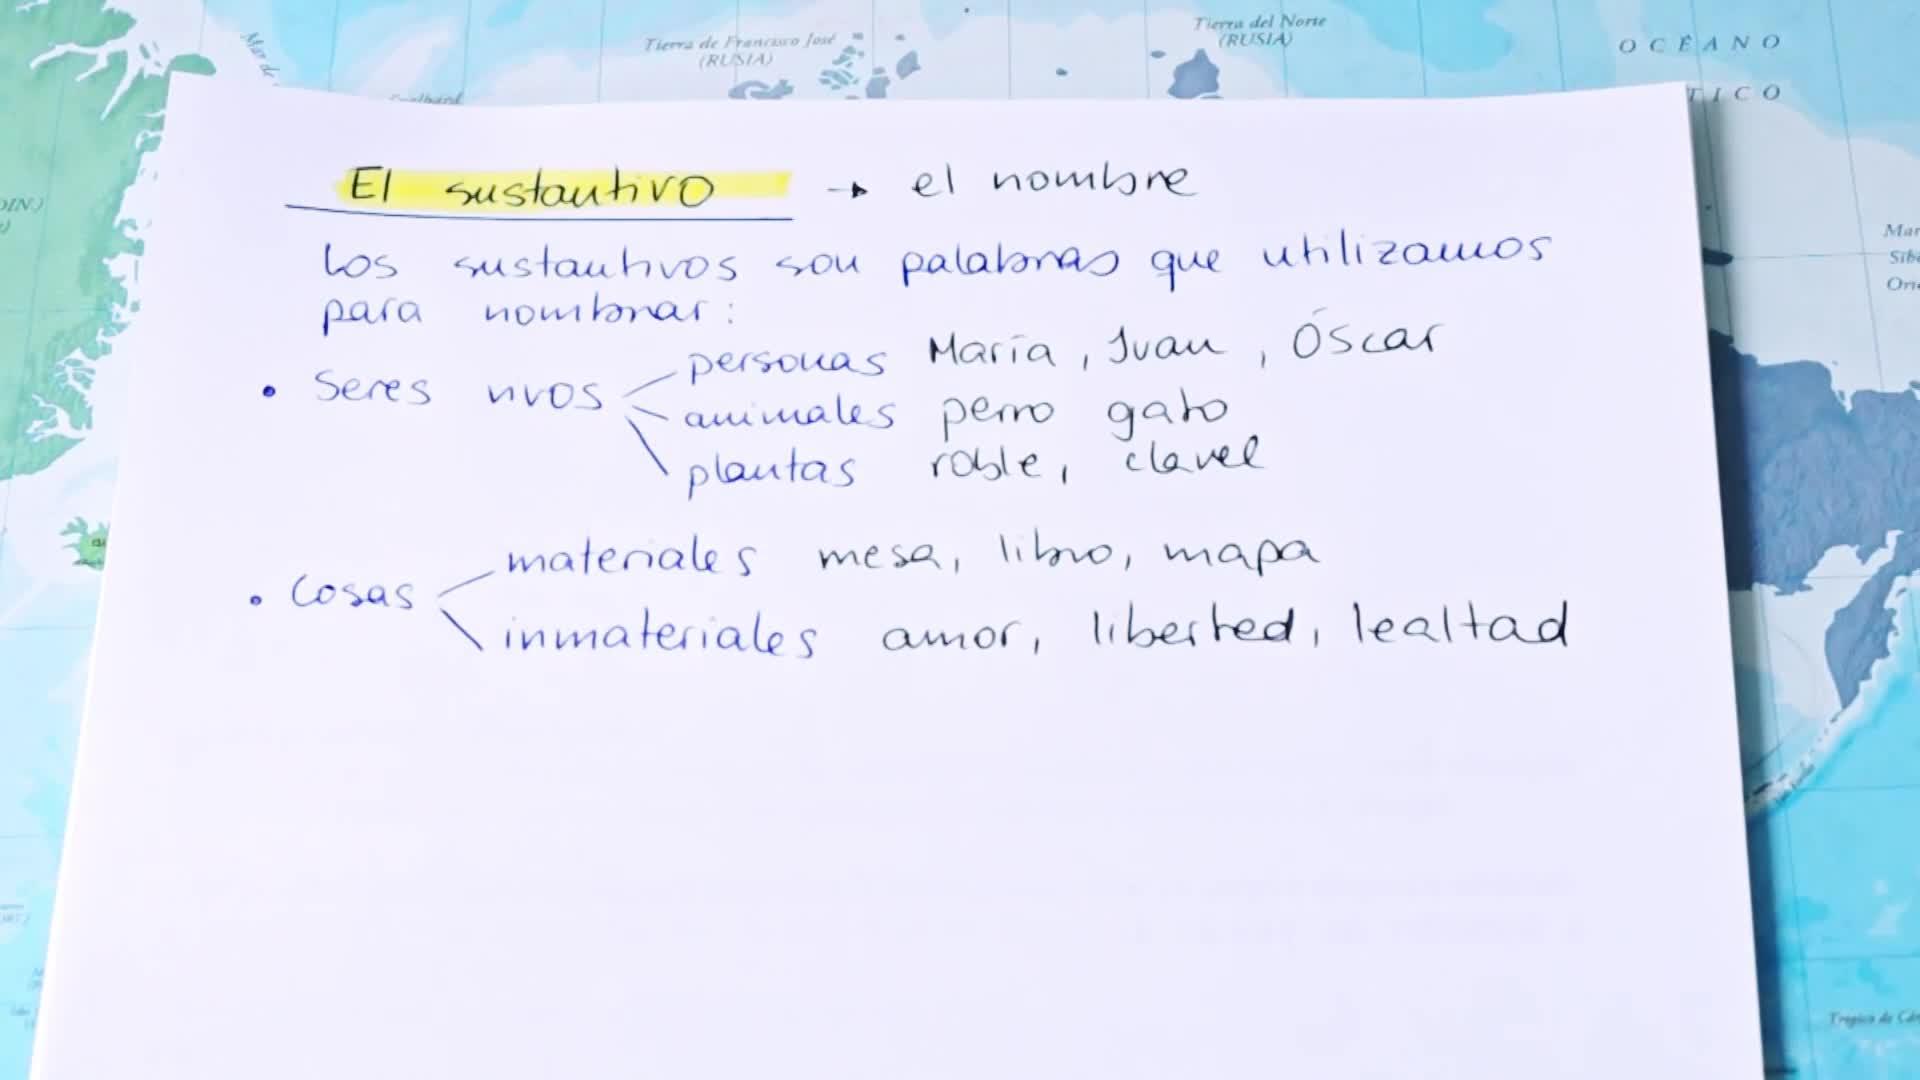 Mar de
Tierra de Francisco José
(RUSIA)
Tierra del Norte
(RUSIA)
OCÉANO
TICO
El sustantivo → el nombre
Los sustantivos son palabras que utilizamos
para nombrar:
• Seres vivos
personas María, Juan, Óscar
animales perro gato
plantas roble, clavel
• Cosas
materiales mesa, libro, mapa
inmateriales amor, libertad, lealtad